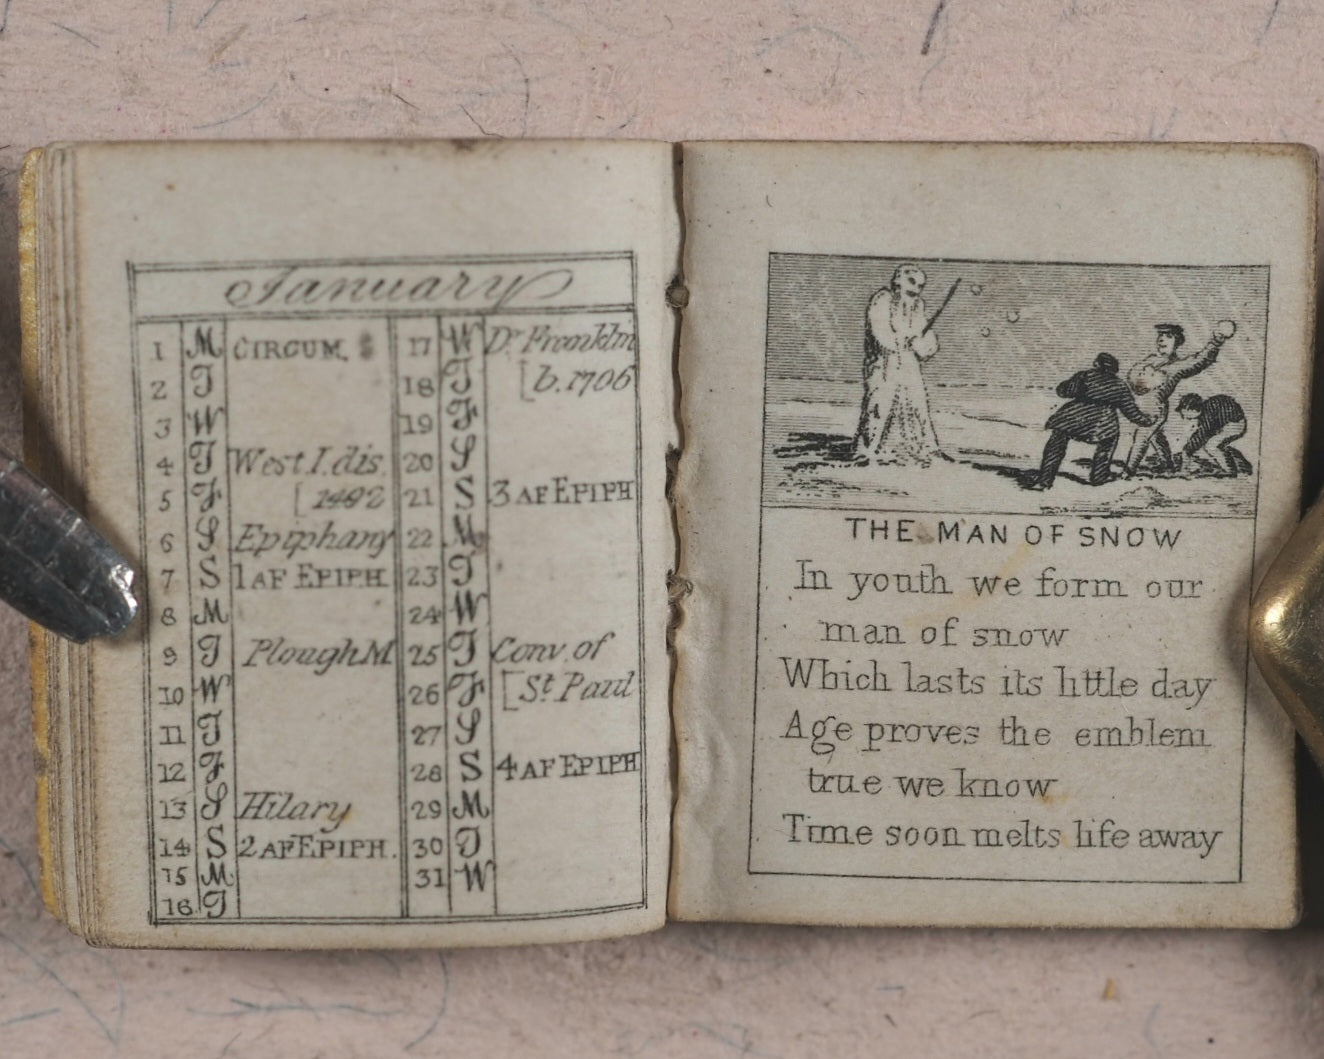 January
1 M CIRCUM.
2 T
3 W
4 T West I. dis.
5 F [1492
6 S Epiphany
7 S 1 AF EPIPH.
8 M
9 T Plough M
10 W
11 T
12 F
13 S Hilary
14 S 2 AF EPIPH.
15 M
16 T
17 W Dr Franklin
18 T [b. 1706
19 F
20 S
21 S 3 AF EPIPH
22 M
23 T
24 W
25 T Conv. of
26 F [St Paul
27 S
28 S 4 AF EPIPH
29 M
30 T
31 W
THE MAN OF SNOW
In youth we form our
man of snow
Which lasts its little day
Age proves the emblem
true we know
Time soon melts life away